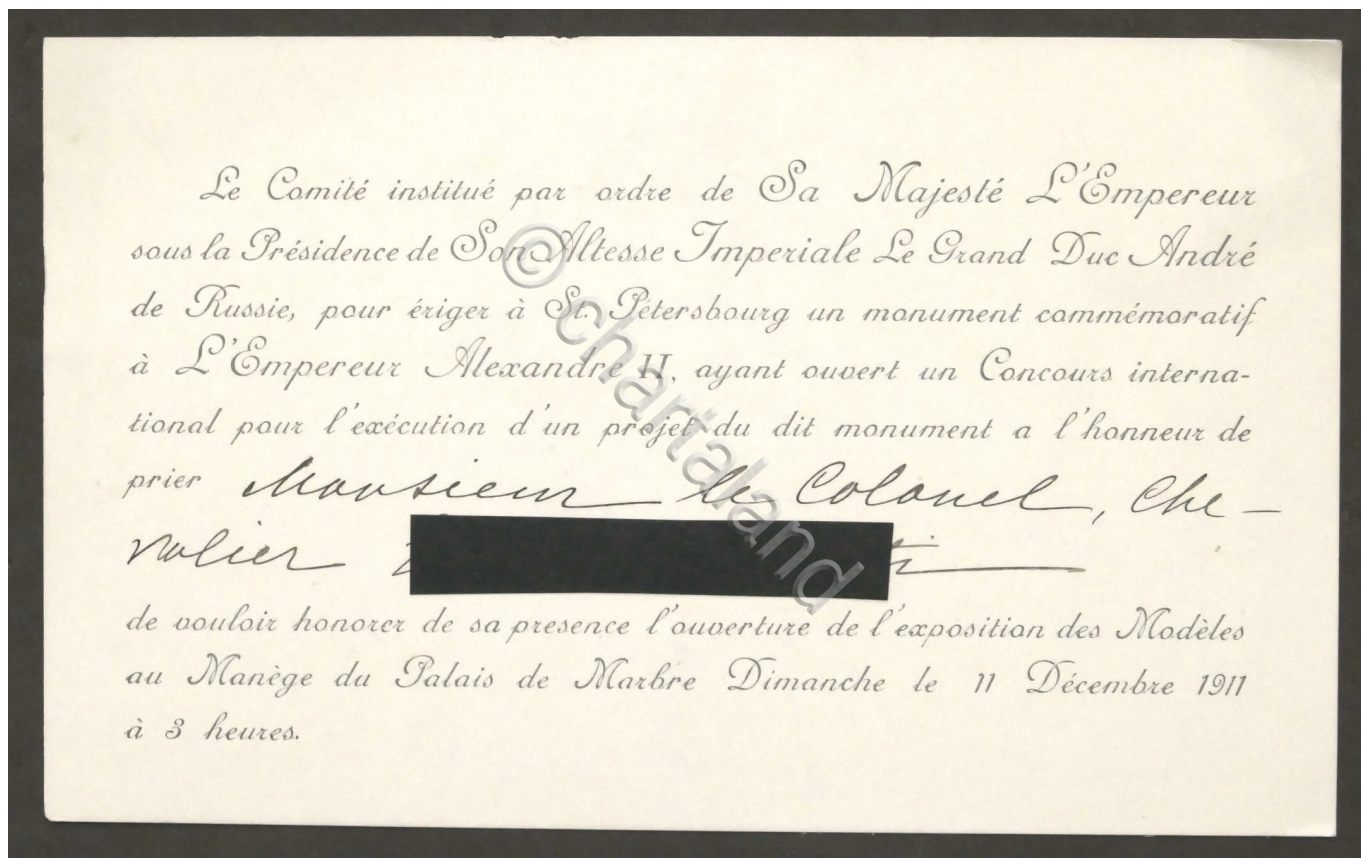 Le Comité institué par ordre de Sa Majesté L'Empereur
sous la Présidence de Son Altesse Imperiale Le Grand Duc André
de Russie, pour ériger à St. Pétersbourg un monument commémoratif
à L'Empereur Alexandre II, ayant ouvert un Concours interna-
tional pour l'exécution d'un projet du dit monument a l'honneur de
prier Monsieur le Colonel, Che-
valier
de vouloir honorer de sa presence l'ouverture de l'exposition des Modèles
au Manège du Palais de Marbre Dimanche le 11 Décembre 1911
à 3 heures.
© chartaland